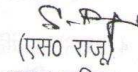 (एस0 राजू)